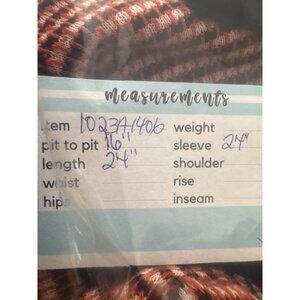 measurements
item 1023A1406 weight
pit to pit 16" sleeve 24"
length 24" shoulder
waist rise
hips inseam